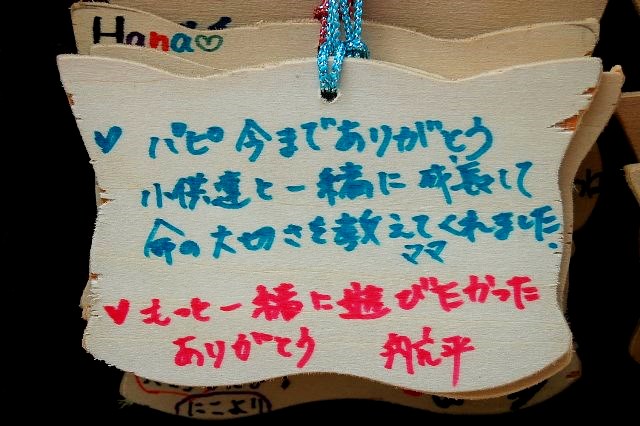 Hana♡
♥ パピ 今までありがとう
小供達と一緒に成長して
命の大切さを教えてくれました。
ママ
♥ もっと一緒に遊びたかった
ありがとう
にこより